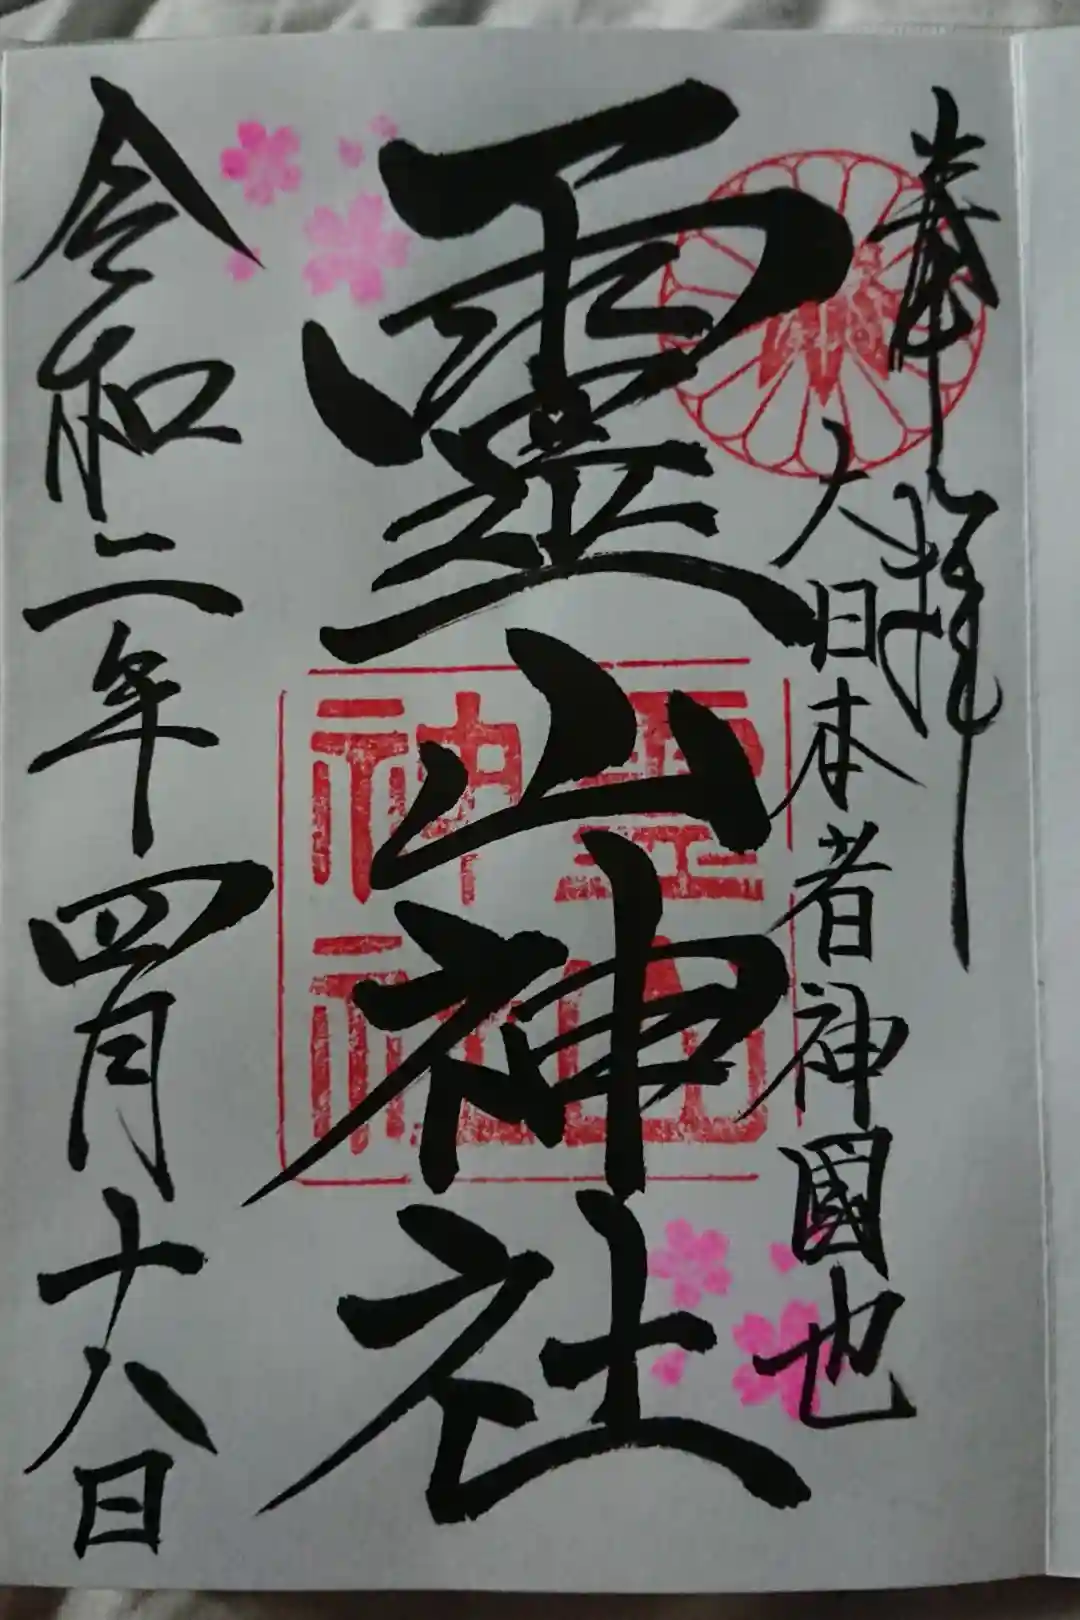 奉拝
大日本者神國也
霊山神社
霊山
神社
令和二年四月十八日